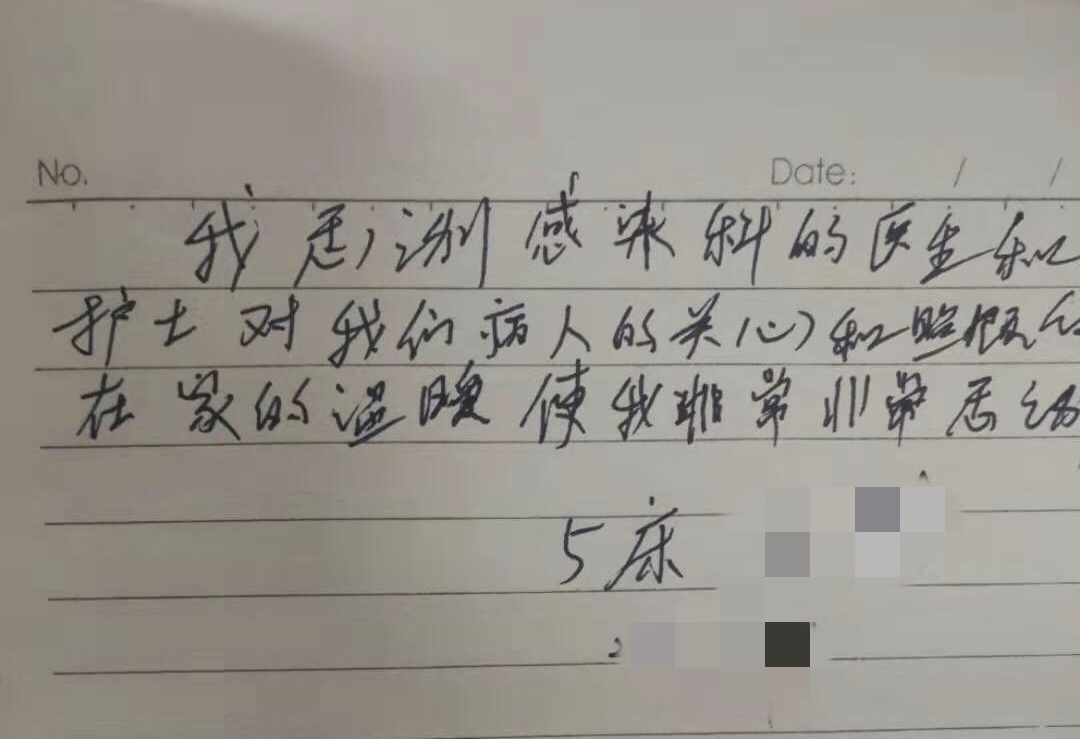 No. Date: / /
我感谢感染科的医生和
护士对我们病人的关心和照顾
在家的温暖使我非常非常感动
5床
2